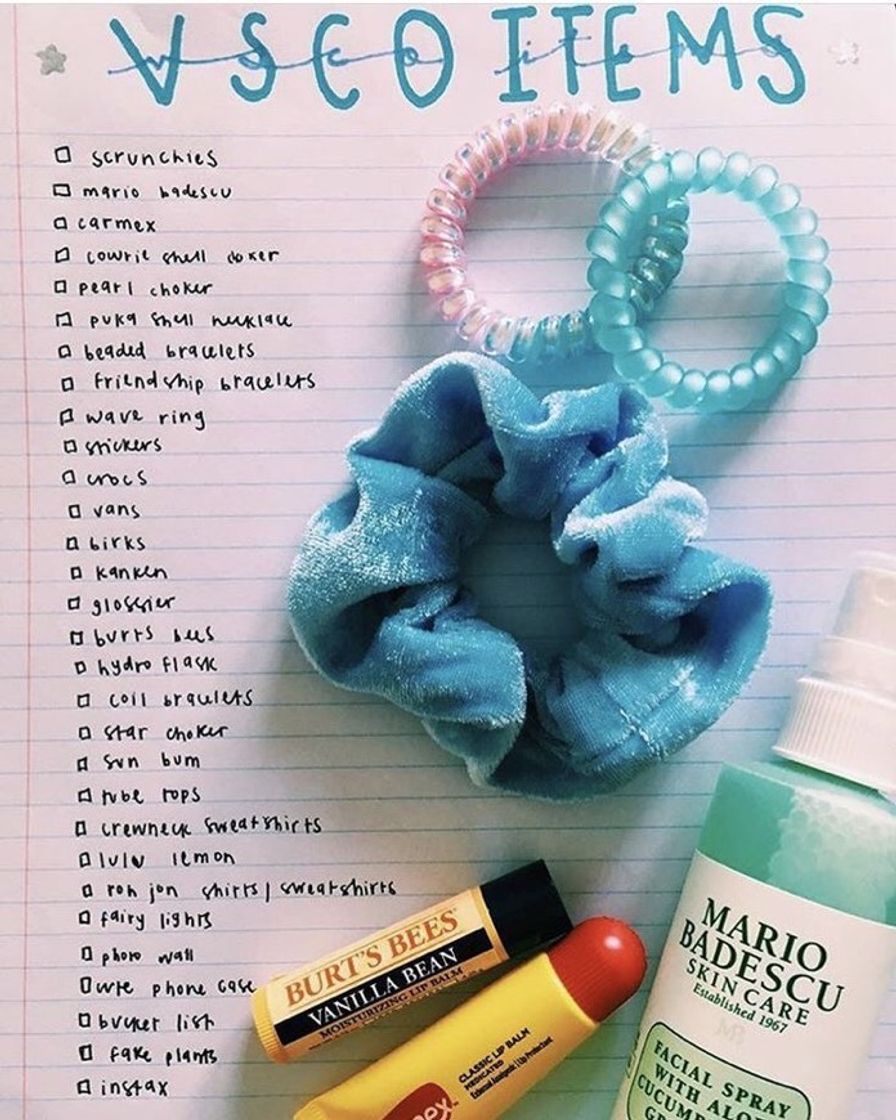 VSCO ITEMS
vsco items
scrunchies
mario badescu
carmex
cowrie shell choker
pearl choker
puka shell necklace
beaded bracelets
friendship bracelets
wave ring
stickers
crocs
vans
birks
kanken
glossier
burts bees
hydro flask
coil bracelets
star choker
sun bum
tube tops
crewneck sweatshirts
lulu lemon
ron jon shirts/sweatshirts
fairy lights
photo wall
cute phone case
bucket list
fake plants
instax
BURT'S BEES
VANILLA BEAN
MOISTURIZING LIP BALM
CLASSIC LIP BALM
MEDICATED
External Analgesic | Lip Protectant
MARIO
BADESCU
SKIN CARE
Established 1967
MB
FACIAL SPRAY
WITH ALO
CUCUM